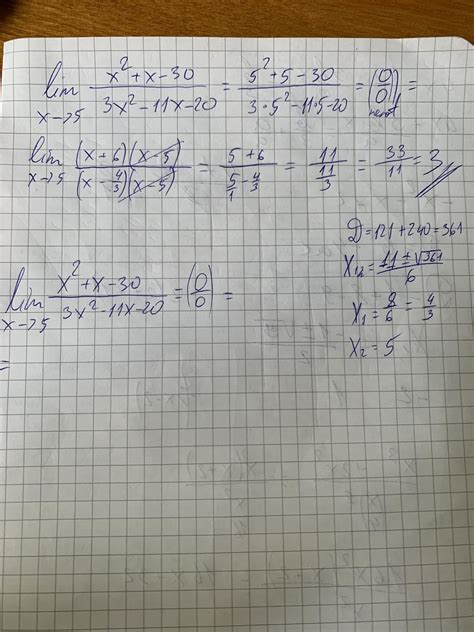 lim x→5 (x²+x-30)/(3x²-11x-20) = (5²+5-30)/(3·5²-11·5-20) = (0/0) =
lim x→5 ((x+6)(x-5))/((x-4/3)(x-5)) = (5+6)/(5/1-4/3) = 11/(11/3) = 33/11 = 3
D=121+240=361
X₁,₂=(11±√361)/6
X₁=8/6=4/3
X₂=5
lim x→5 (x²+x-30)/(3x²-11x-20) = (0/0) =
=